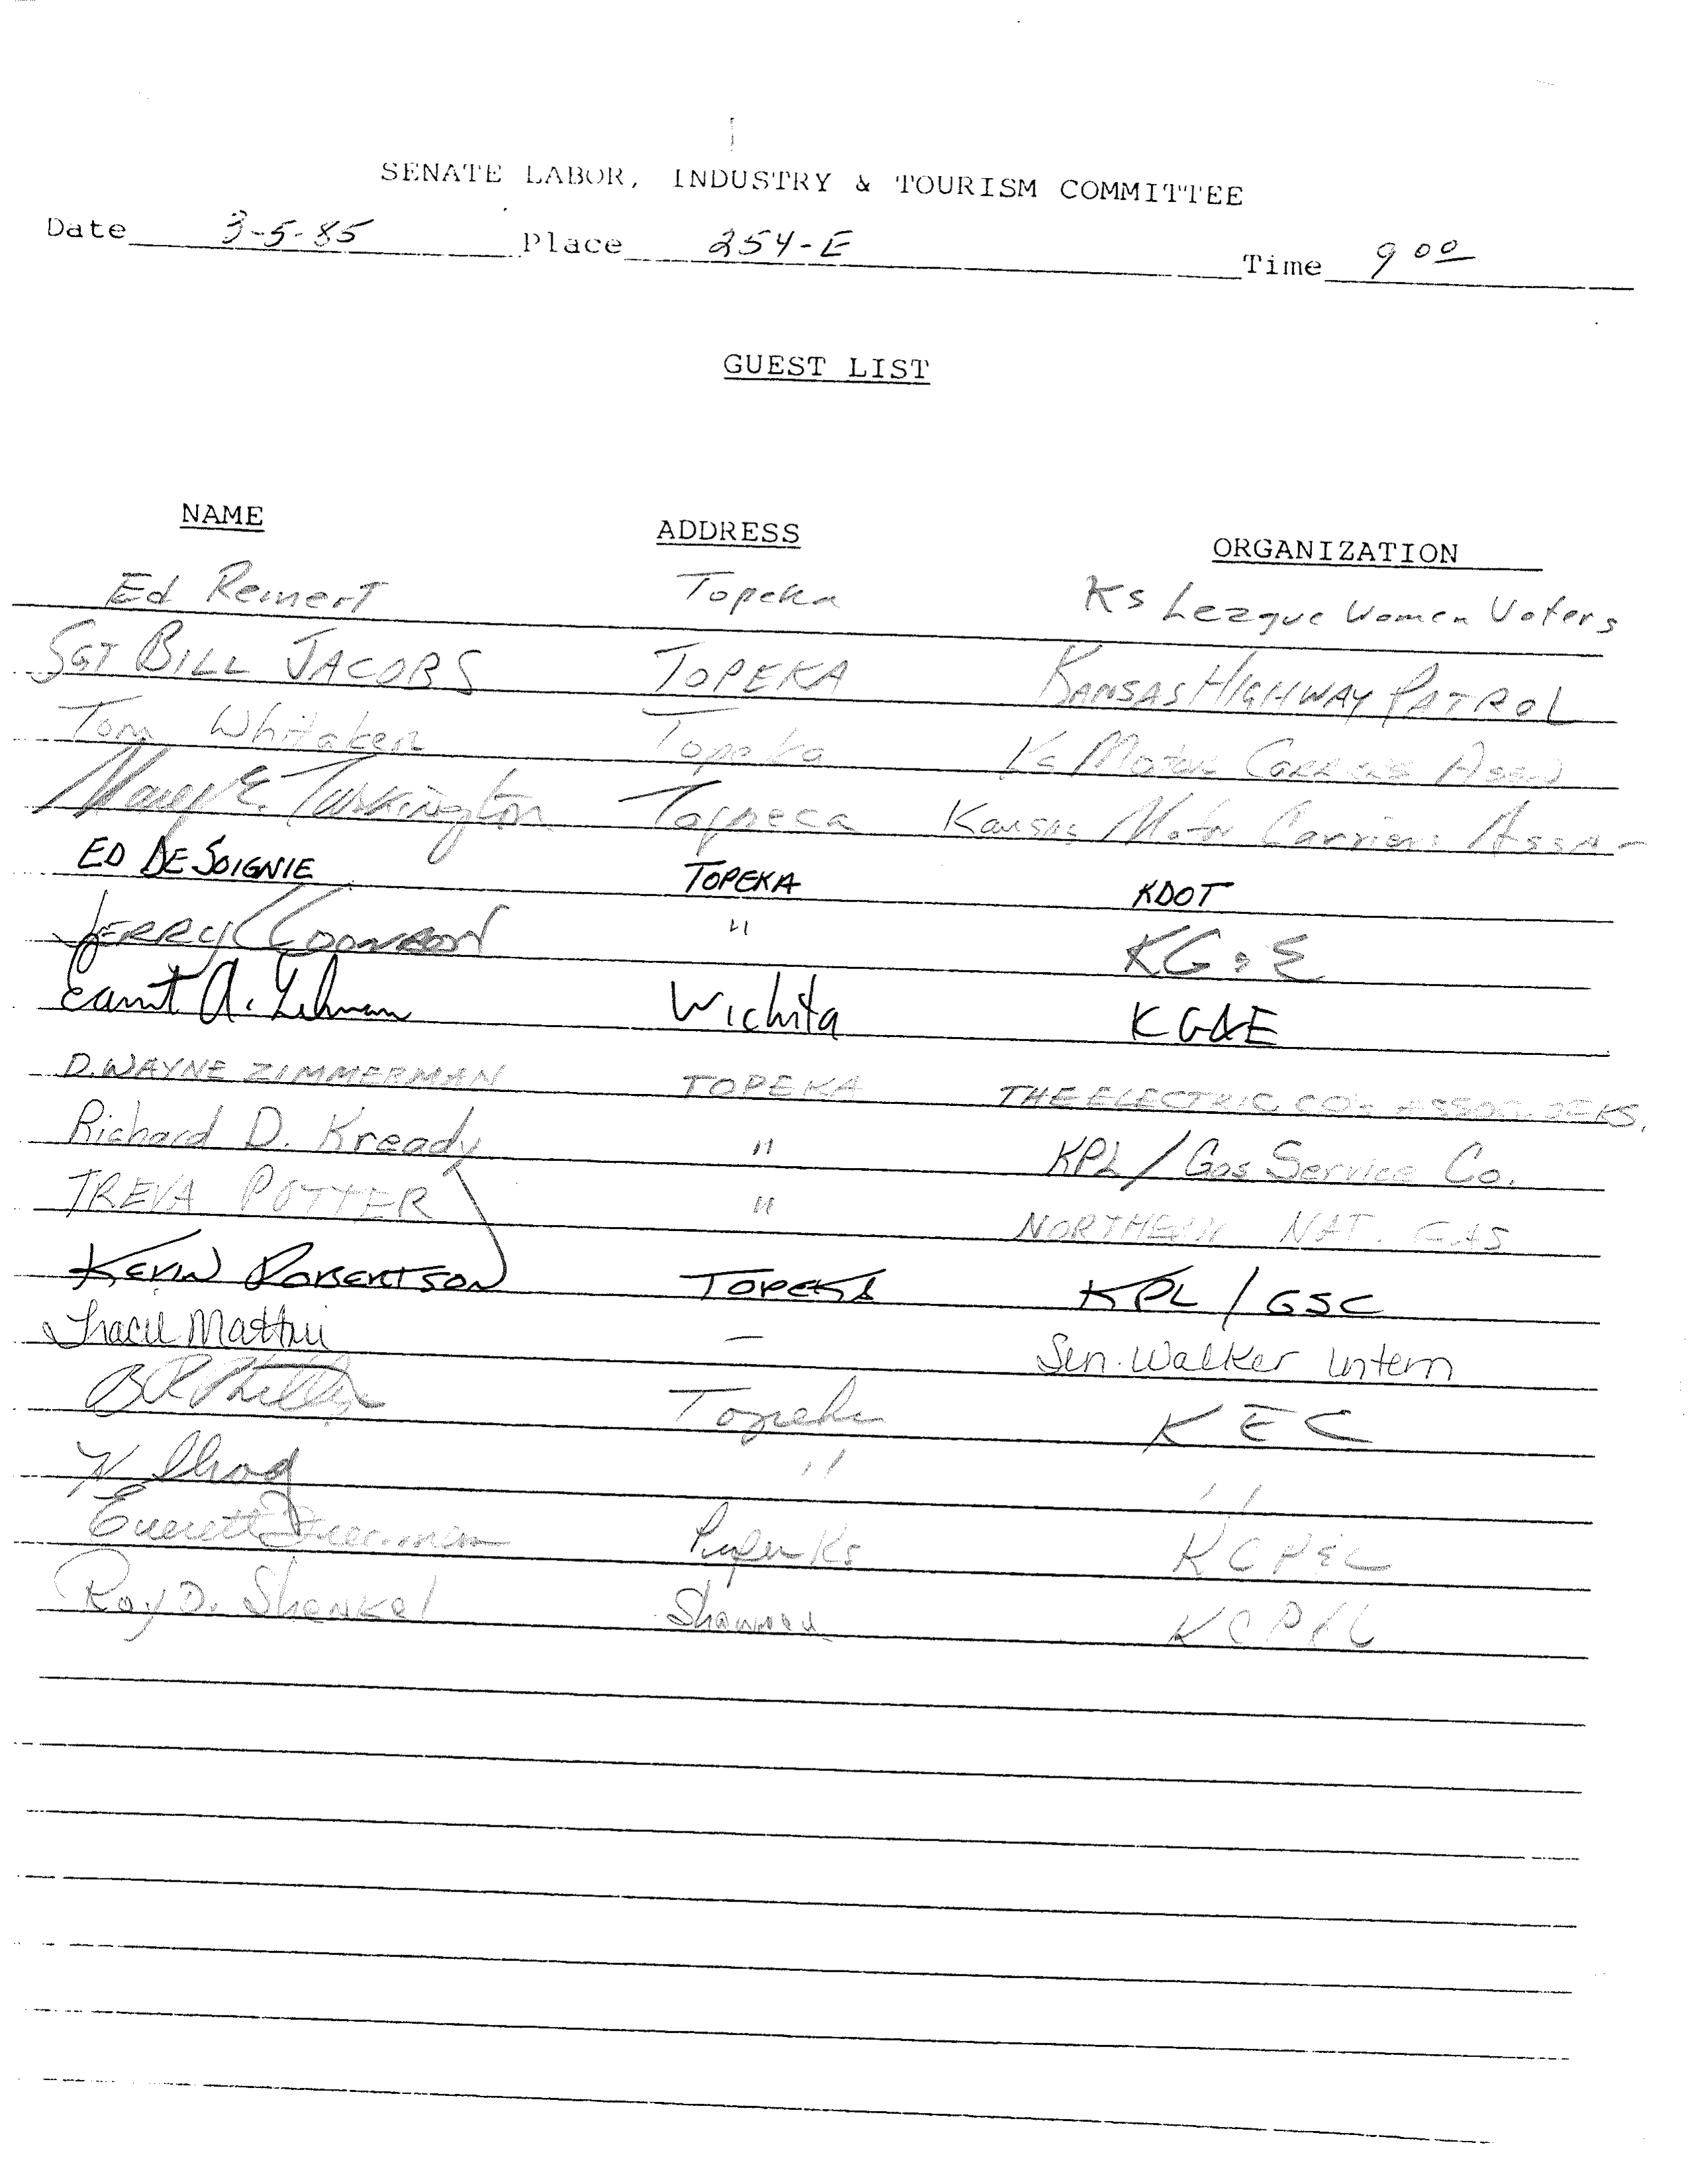 SENATE LABOR, INDUSTRY & TOURISM COMMITTEE
Date 3-5-85 Place 254-E Time 9 00
GUEST LIST
NAME ADDRESS ORGANIZATION
Ed Reinert Topeka Ks League Women Voters
SGT BILL JACOBS TOPEKA KANSAS HIGHWAY PATROL
Tom Whitaker Topeka Ks Motor Carriers Assn
Mary E. Turkington Topeca Kansas Motor Carriers Assn
ED DE SOIGNIE TOPEKA KDOT
JERRY COONROD " KG & E
A. Lehman Wichita KG&E
D. WAYNE ZIMMERMAN TOPEKA THE ELECTRIC CO'S ASSOC. OF KS.
Richard D. Kready " KPL / Gas Service Co.
TREVA POTTER " NORTHERN NAT. GAS
KEVIN ROBERTSON TOPEKA KPL / GSC
Tracie — Sen. Walker Intern
Topeka KEC
" "
Everett Ks KCP&L
Roy D. Shenkel Shawnee KCP&L